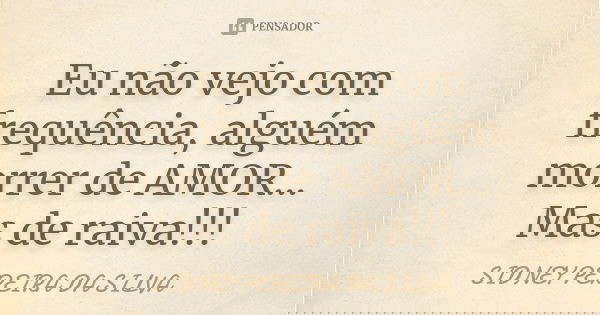 PENSADOR
Eu não vejo com
frequência, alguém
morrer de AMOR...
Mas de raiva!!!!
SIDNEY PEREIRA DA SILVA